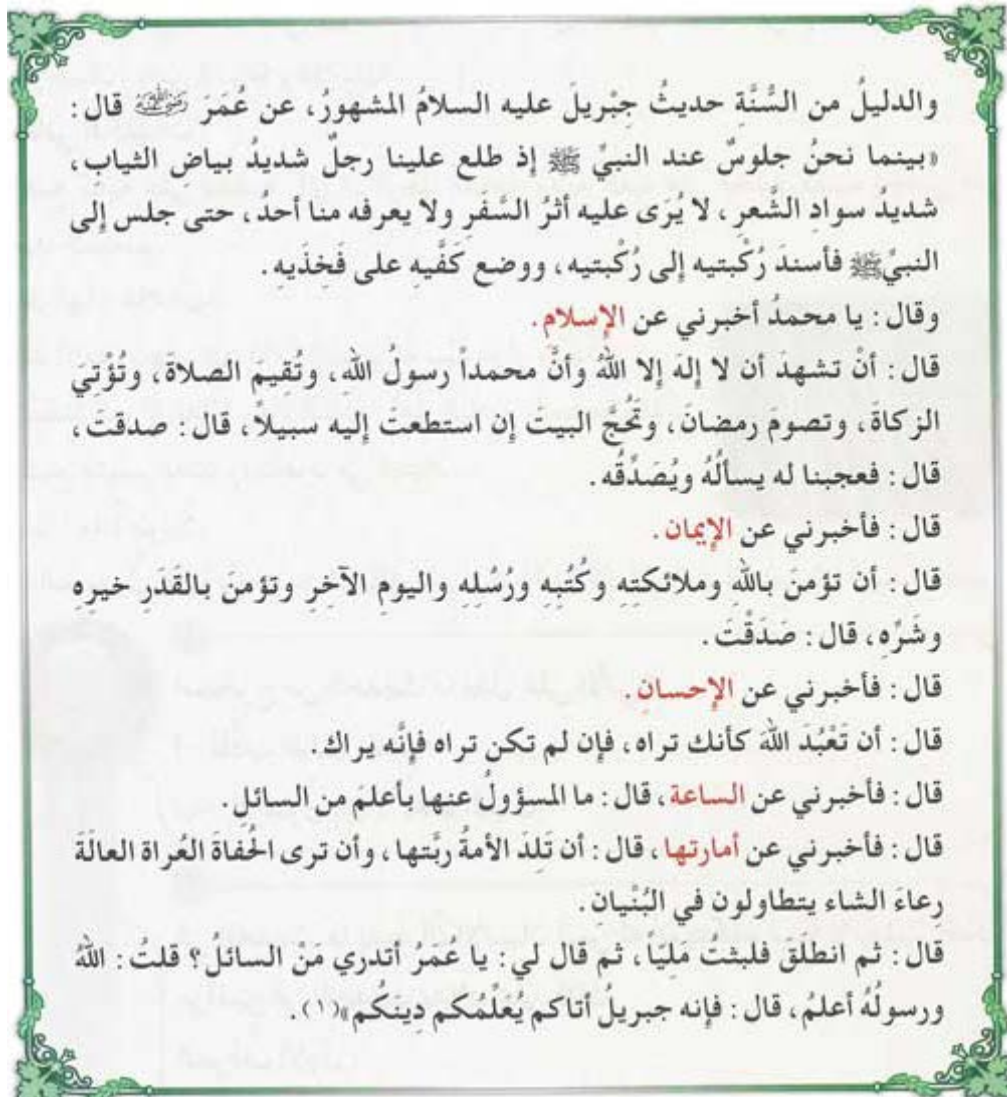 والدليلُ من السُّنَّةِ حديثُ جِبْريلَ عليه السلامُ المشهورُ، عن عُمَرَ رضي الله عنه قال:
«بينما نحنُ جلوسٌ عند النبيِّ ﷺ إذ طلع علينا رجلٌ شديدُ بياض الثياب،
شديدُ سوادِ الشَّعرِ، لا يُرَى عليه أثرُ السَّفرِ ولا يعرفه منا أحدٌ، حتى جلس إلى
النبيِّ ﷺ فأسندَ رُكْبتيه إلى رُكْبتيه، ووضع كَفَّيهِ على فَخِذَيهِ.
وقال: يا محمدُ أخبرني عن الإسلامِ.
قال: أنْ تشهدَ أن لا إلهَ إلا اللهُ وأنَّ محمداً رسولُ اللهِ، وتُقيمَ الصلاةَ، وتُؤْتِيَ
الزكاةَ، وتصومَ رمضانَ، وتَحُجَّ البيتَ إن استطعتَ إليه سبيلاً، قال: صدقتَ،
قال: فعجبنا له يسألُهُ ويُصَدِّقُه.
قال: فأخبرني عن الإيمان.
قال: أن تؤمنَ باللهِ وملائكتِهِ وكُتُبِهِ ورُسُلِهِ واليومِ الآخرِ وتؤمنَ بالقدَرِ خيرِهِ
وشَرِّهِ، قال: صَدَقْتَ.
قال: فأخبرني عن الإحسانِ.
قال: أن تَعْبُدَ اللهَ كأنك تراه، فإن لم تكن تراه فإنَّه يراك.
قال: فأخبرني عن الساعة، قال: ما المسؤولُ عنها بأعلمَ من السائلِ.
قال: فأخبرني عن أمارتها، قال: أن تَلِدَ الأمةُ ربَّتها، وأن ترى الحُفاةَ العُراةَ العالَةَ
رعاءَ الشاء يتطاولون في البُنْيان.
قال: ثم انطلقَ فلبثتُ مَلِيّا، ثم قال لي: يا عمرُ أتدري منْ السائل؟ قلتُ: اللهُ
ورسولُهُ أعلمُ، قال: فإنه جبريلُ أتاكم يُعَلِّمُكم دِينَكُم»(١).